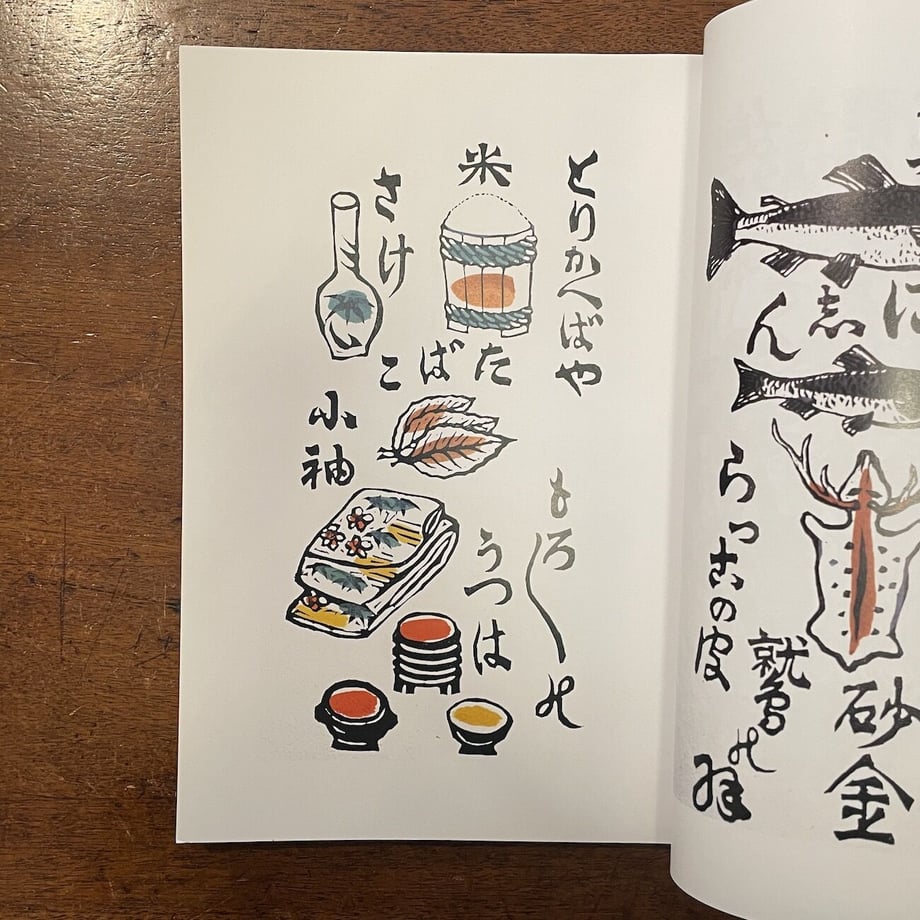 に志ん
砂金
らつこの皮
鷲の羽
とりかへばや
米
さけ
たばこ
小袖
もろ〳〵の
うつは